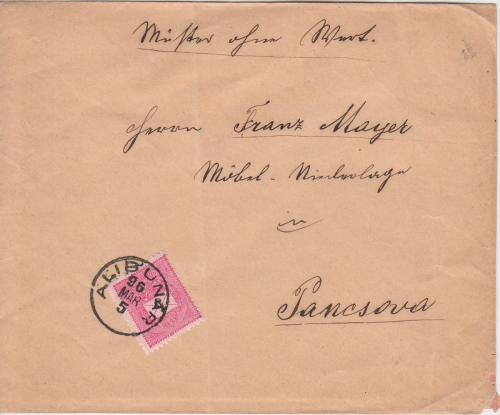 Muster ohne Wert.
Herrn Franz Mayer
Möbel-Niederlage
in
Pancsova
ALIBUNÁR
96
MÁR
5